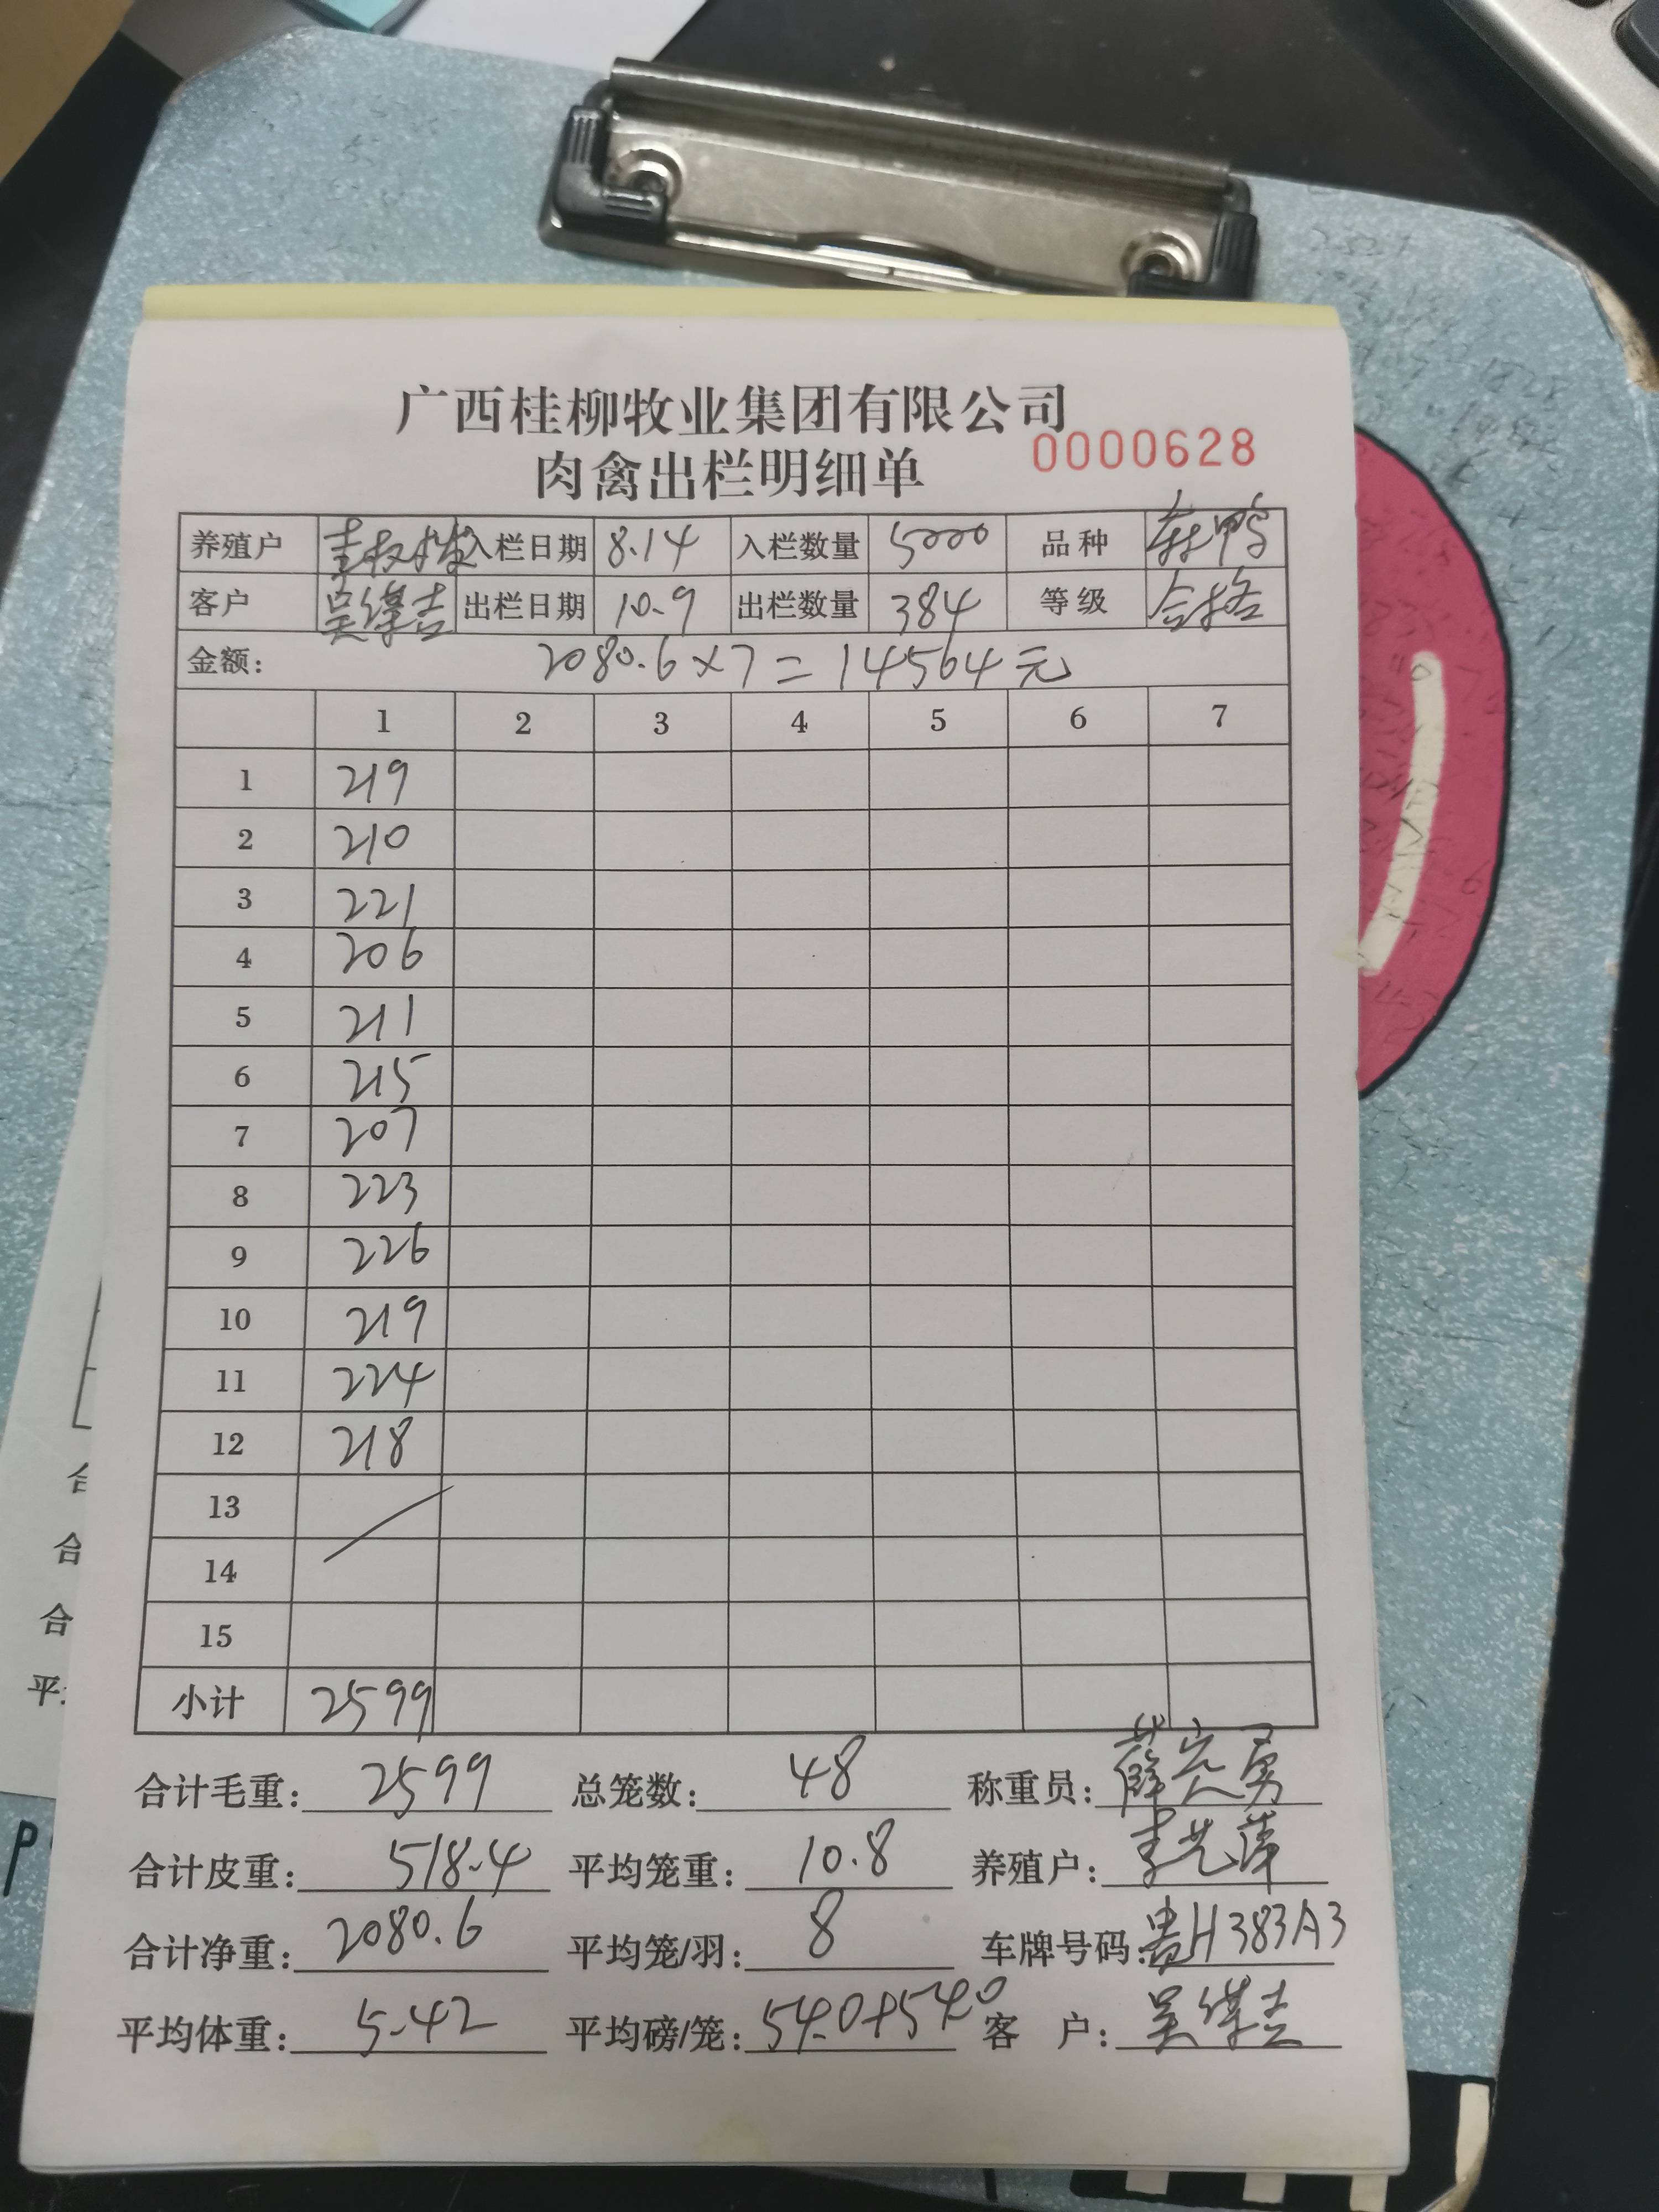 广西桂柳牧业集团有限公司
肉禽出栏明细单 0000628
养殖户 入栏日期 8.14 入栏数量 5000 品种 麻鸭
客户 出栏日期 10.9 出栏数量 384 等级 合格
金额: 2080.6×7=14564元
1 2 3 4 5 6 7
1 219
2 210
3 221
4 206
5 211
6 215
7 207
8 223
9 226
10 219
11 224
12 218
13
14
15
小计 2599
合计毛重: 2599 总笼数: 48 称重员:
合计皮重: 518.4 平均笼重: 10.8 养殖户:
合计净重: 2080.6 平均笼/羽: 8 车牌号码: 贵H383A3
平均体重: 5.42 平均磅/笼: 客 户: